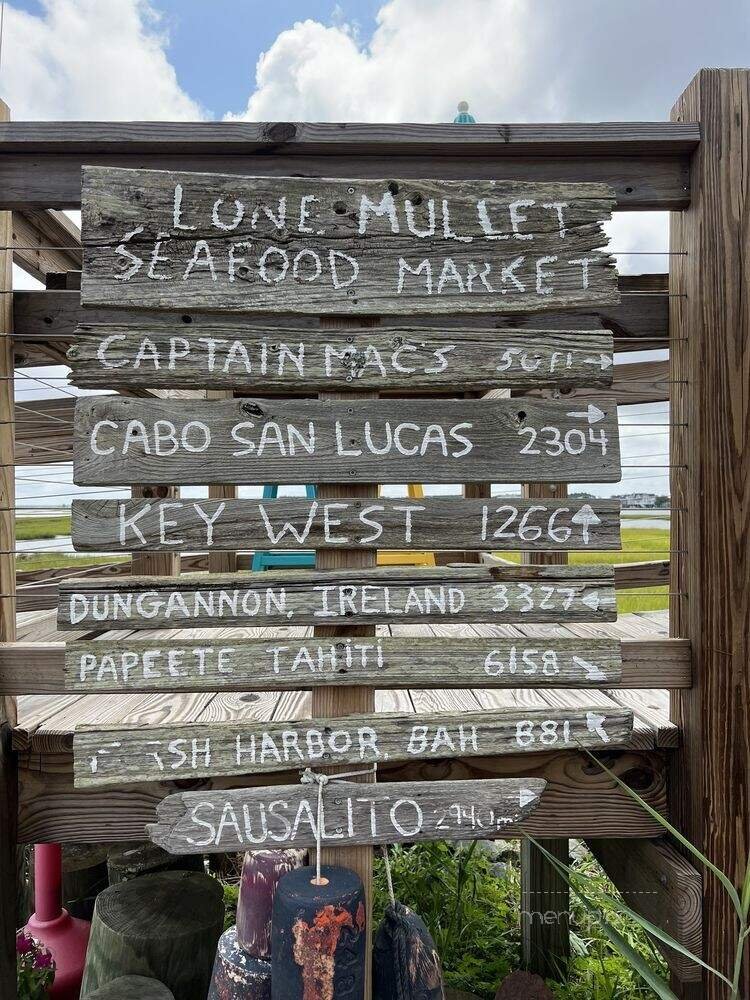 LONE MULLET
SEAFOOD MARKET
CAPTAIN MAC'S 50 FT →
CABO SAN LUCAS 2304 →
KEY WEST 1266 ↑
DUNGANNON, IRELAND 3327 ←
PAPEETE TAHITI 6158 ↘
SH HARBOR, BAH 881 ↖
SAUSALITO 2940m →